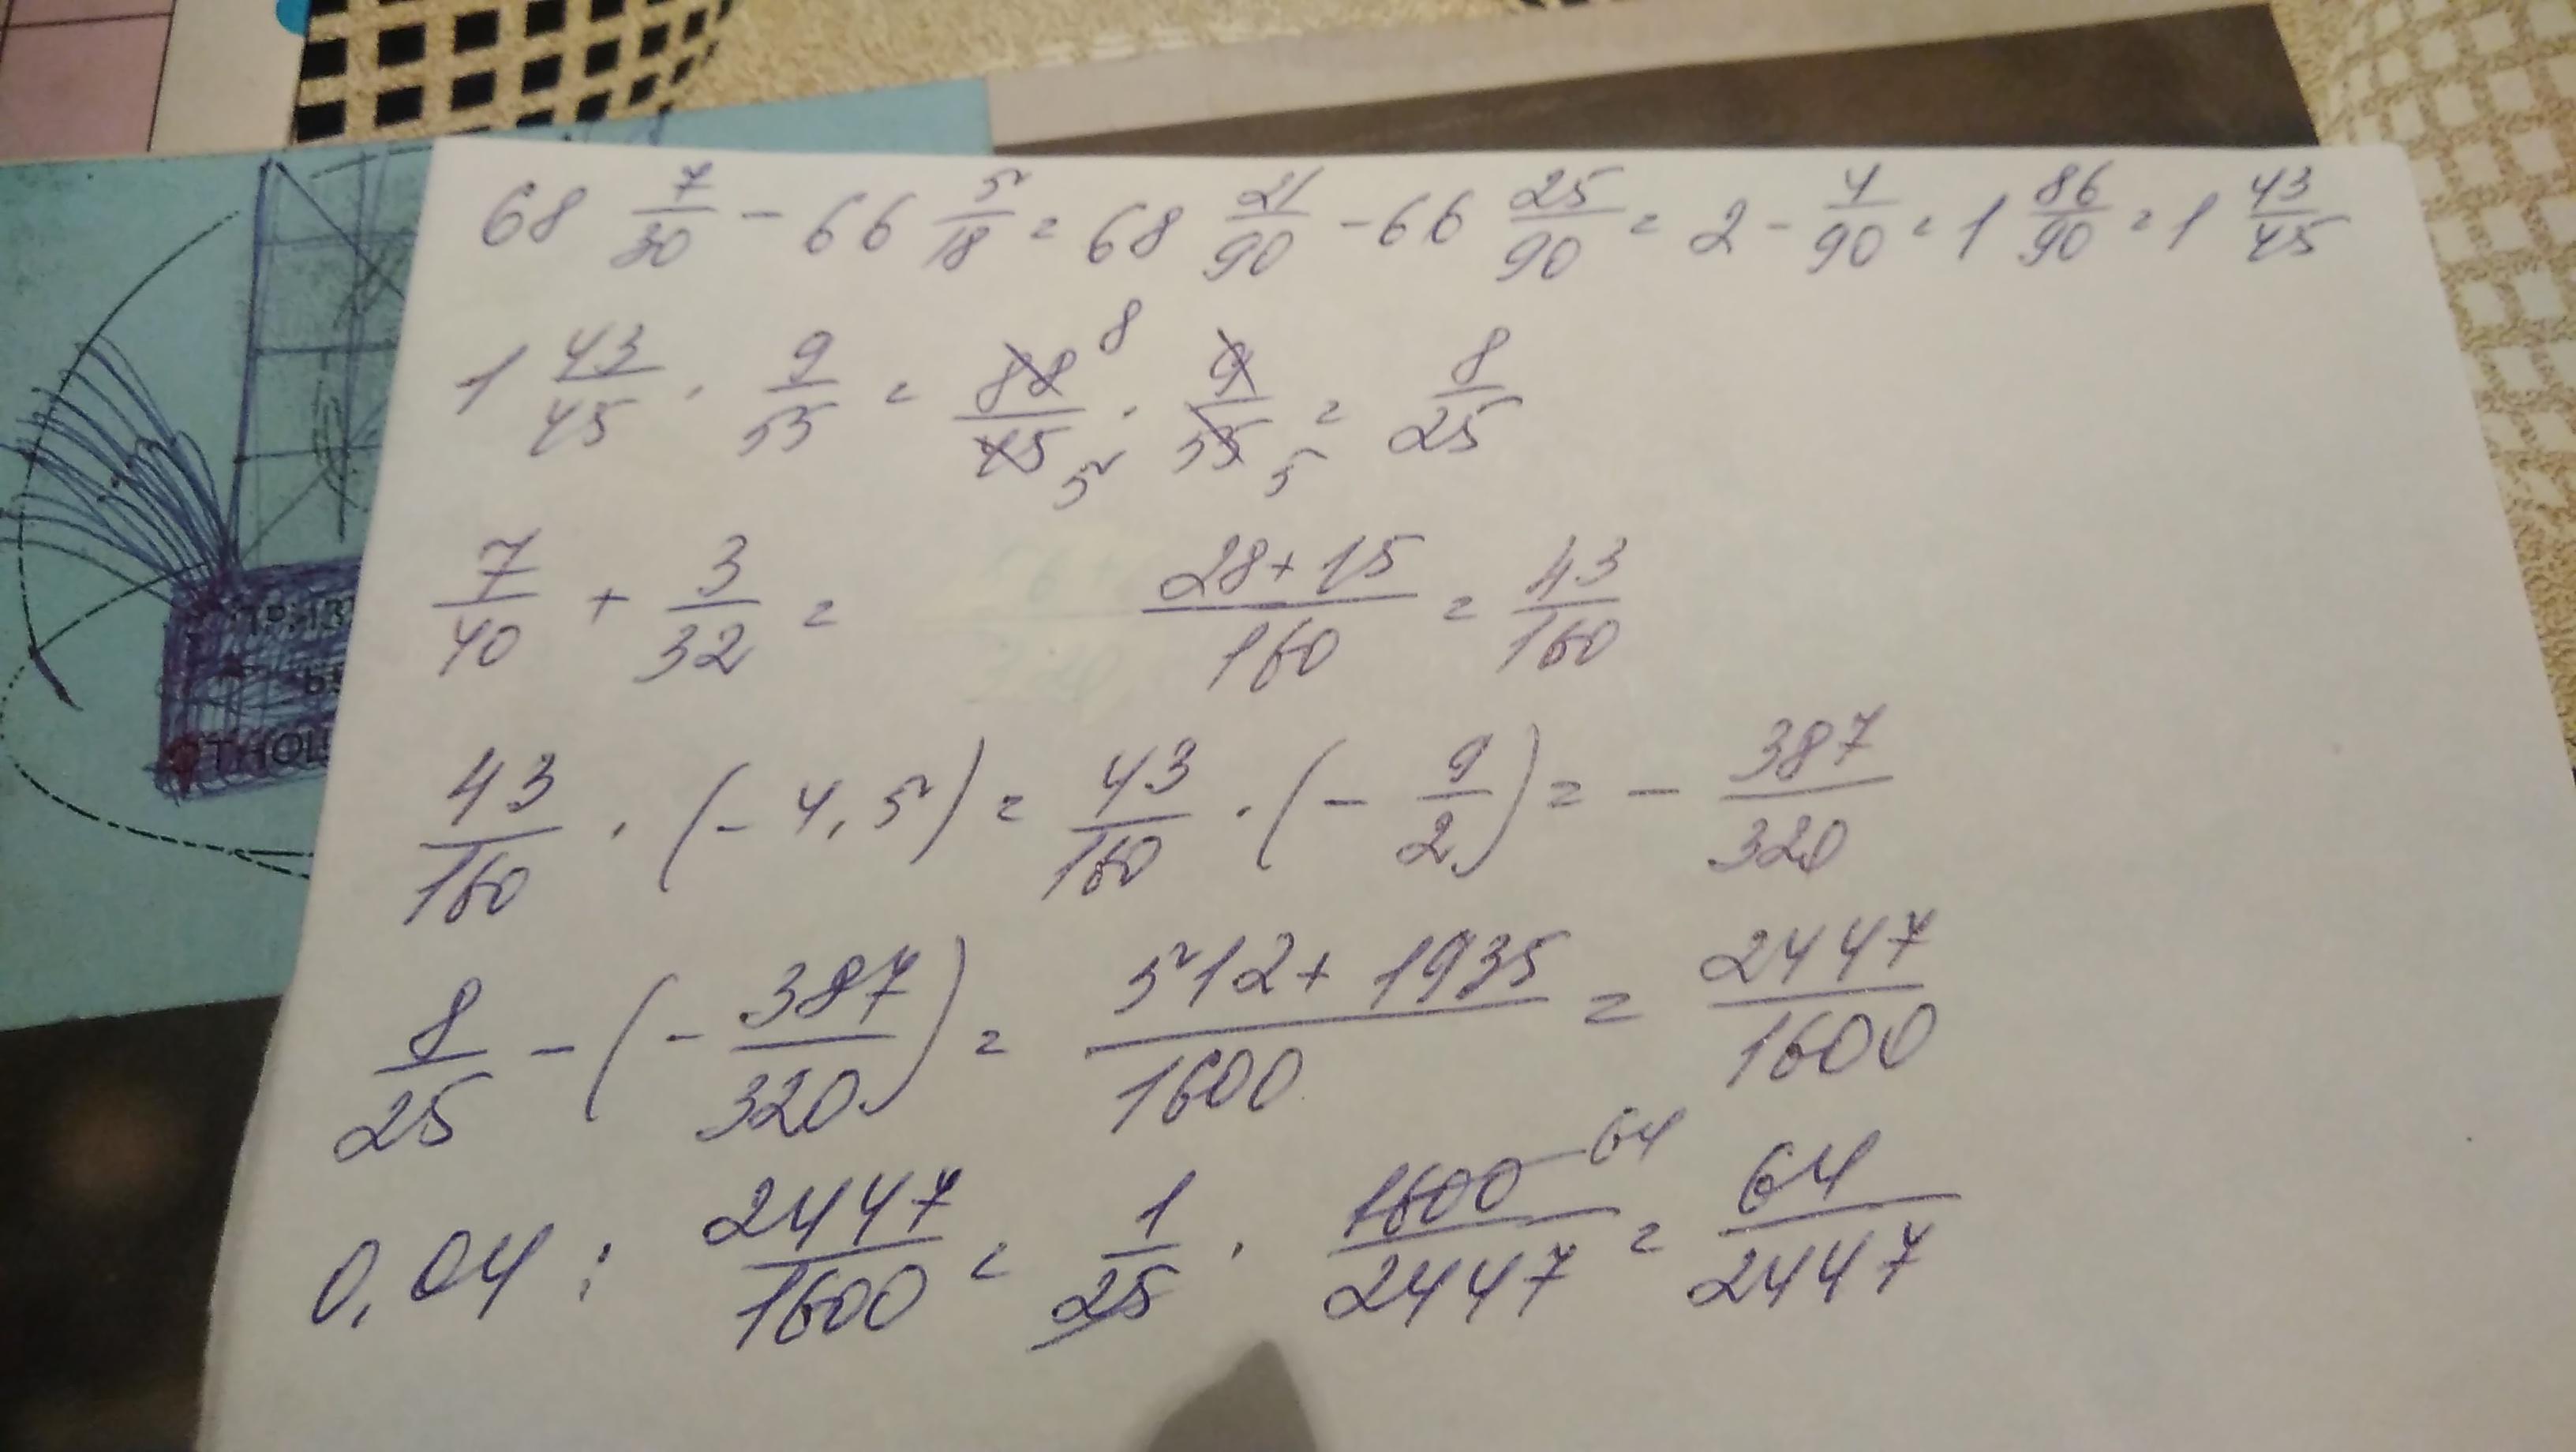 68 7/30 - 66 5/18 = 68 21/90 - 66 25/90 = 2 - 4/90 = 1 86/90 = 1 43/45
1 43/45 · 9/55 = 88/45 · 9/55 = 8/25
8
5 5
7/40 + 3/32 = (28+15)/160 = 43/160
43/160 · (-4,5) = 43/160 · (-9/2) = -387/320
8/25 - (-387/320) = (512+1935)/1600 = 2447/1600
0,04 : 2447/1600 = 1/25 · 1600/2447 = 64/2447
64